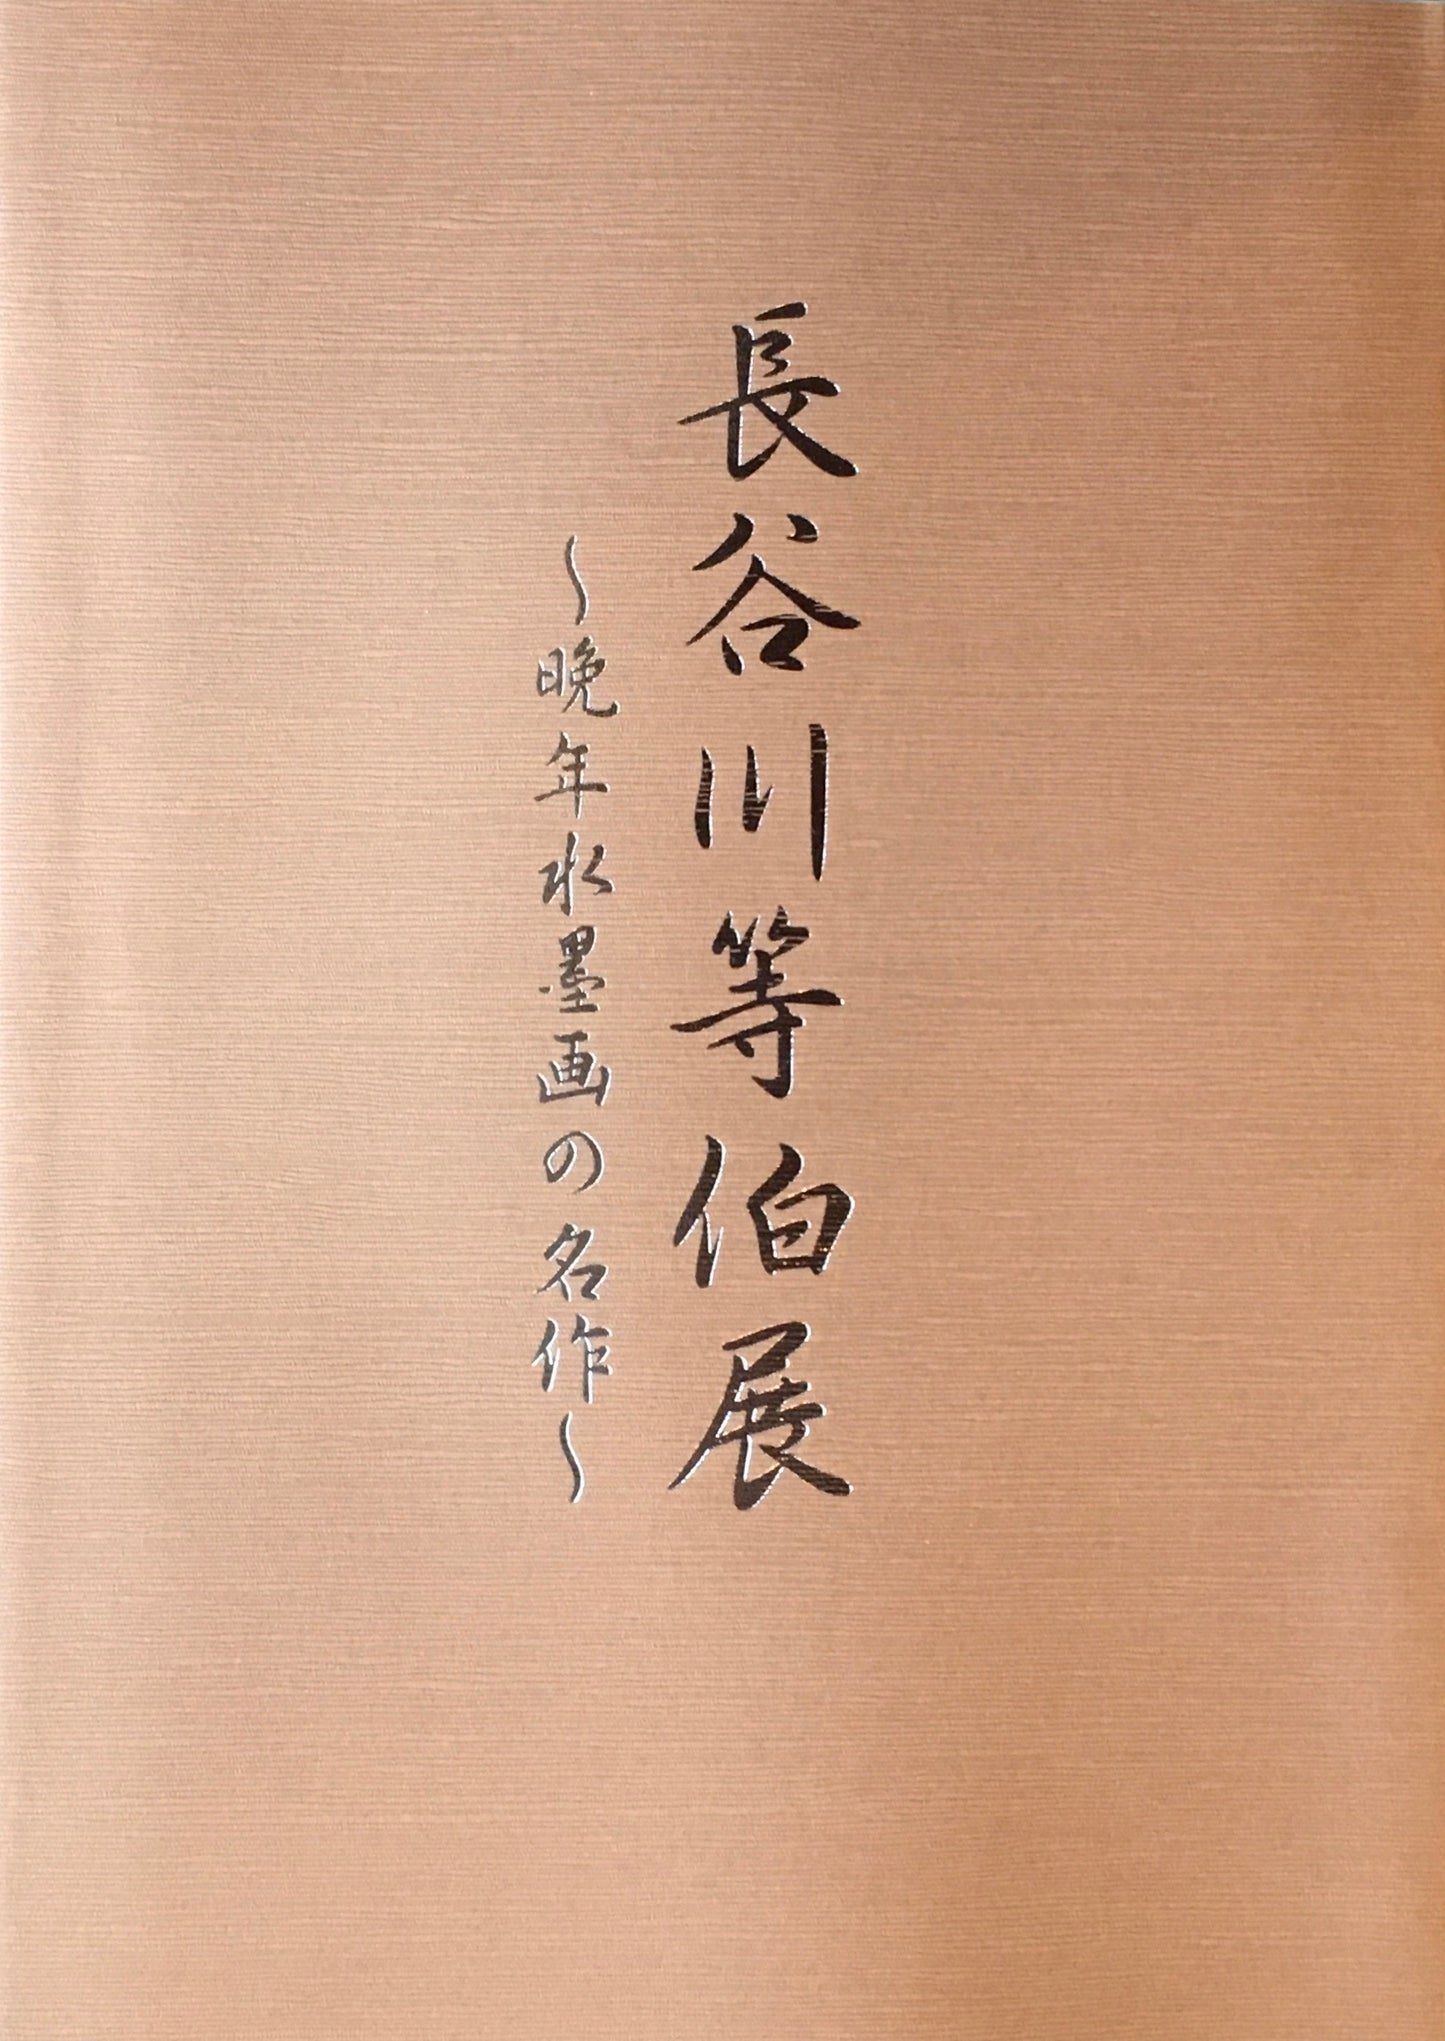 長谷川等伯展
～晩年水墨画の名作～